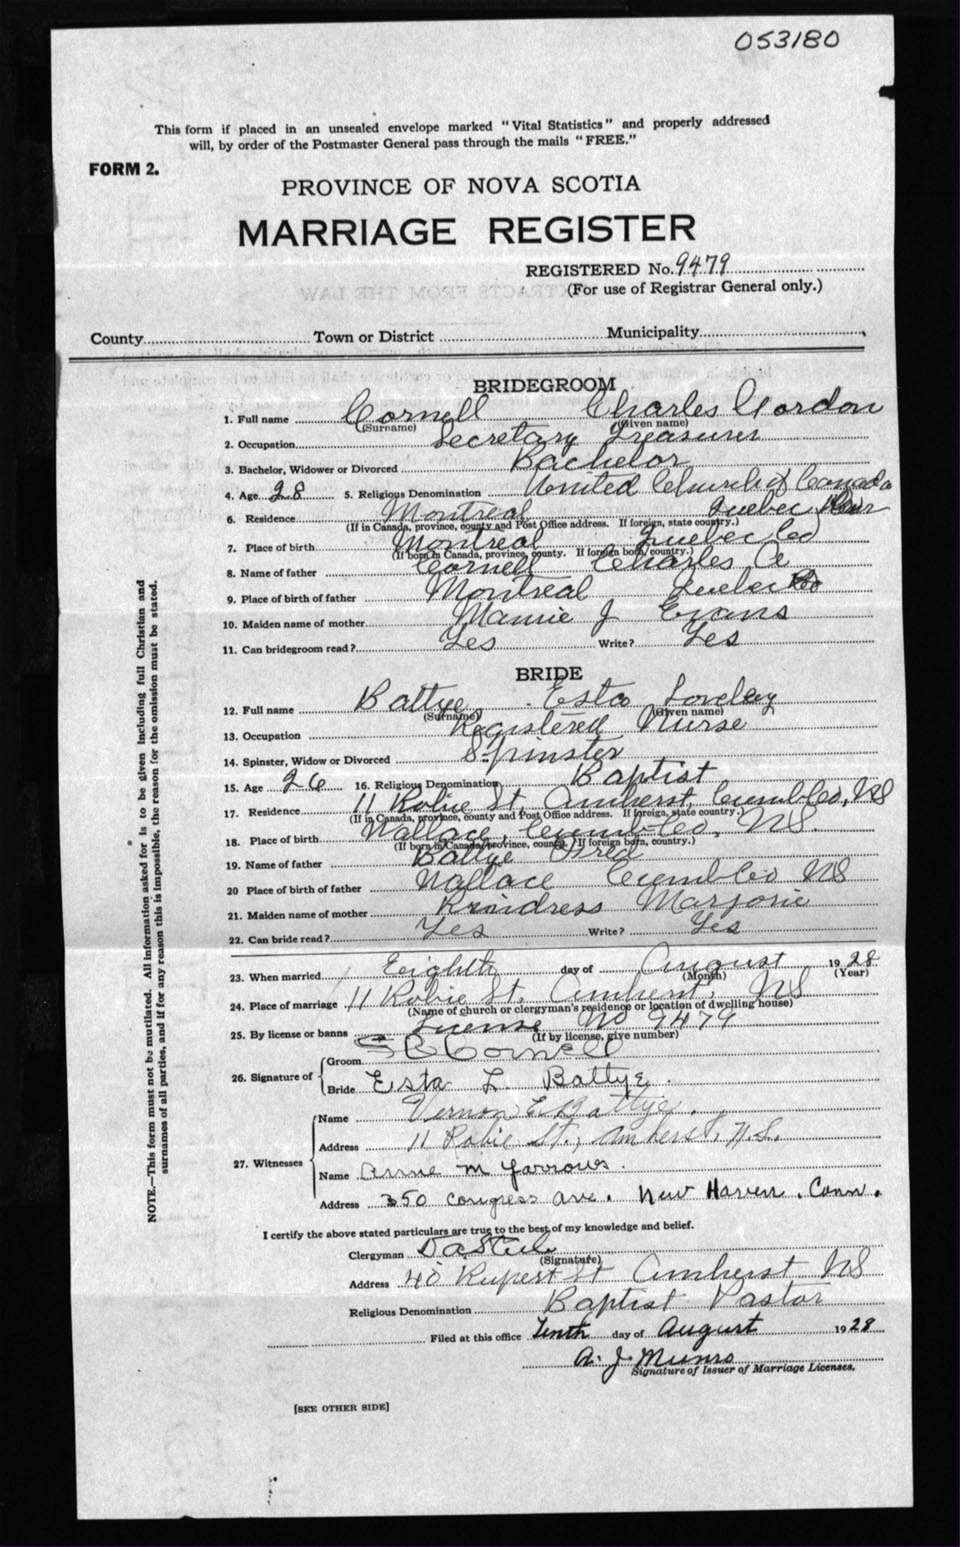 053180
This form if placed in an unsealed envelope marked "Vital Statistics" and properly addressed
will, by order of the Postmaster General pass through the mails "FREE."
FORM 2.
PROVINCE OF NOVA SCOTIA
MARRIAGE REGISTER
REGISTERED No. 9479
(For use of Registrar General only.)
County Town or District Municipality
BRIDEGROOM
1. Full name Cornell Charles Gordon
(Surname) (Given name)
2. Occupation Secretary Treasurer
3. Bachelor, Widower or Divorced Bachelor
4. Age 28 5. Religious Denomination United Church of Canada
6. Residence Montreal Quebec
(If in Canada, province, county and Post Office address. If foreign, state country.)
7. Place of birth Montreal Quebec Co
(If born in Canada, province, county. If foreign born, country.)
8. Name of father Cornell Charles
9. Place of birth of father Montreal Quebec
10. Maiden name of mother Mamie J Evans
11. Can bridegroom read? Yes Write? Yes
BRIDE
12. Full name Battye Esta Loveley
(Surname) (Given name)
13. Occupation Registered Nurse
14. Spinster, Widow or Divorced Spinster
15. Age 26 16. Religious Denomination Baptist
17. Residence 11 Robie St, Amherst, Cumb Co, NS
(If in Canada, province, county and Post Office address. If foreign, state country.)
18. Place of birth Wallace, Cumb Co, NS.
(If born in Canada, province, county. If foreign born, country.)
19. Name of father Battye Fred
20 Place of birth of father Wallace Cumb Co NS
21. Maiden name of mother Kindress Marjorie
22. Can bride read? Yes Write? Yes
23. When married Eighth day of August 1928
(Month) (Year)
24. Place of marriage 11 Robie St. Amherst, NS
(Name of church or clergyman's residence or location of dwelling house)
25. By license or banns License No 9479
(If by license, give number)
26. Signature of Groom Cornell
Bride Esta L. Battye.
27. Witnesses Name Vernon E. Battye.
Address 11 Robie St., Amherst, N.S.
Name Anne M Yarrows.
Address 350 Congress Ave. New Haven. Conn.
I certify the above stated particulars are true to the best of my knowledge and belief.
Clergyman D A Steele
(Signature)
Address 40 Rupert St Amherst NS
Religious Denomination Baptist Pastor
Filed at this office Tenth day of August 1928
A. J. Munro
Signature of Issuer of Marriage Licenses.
[SEE OTHER SIDE]
NOTE.—This form must not be mutilated. All information asked for is to be given including full Christian and
surnames of all parties, and if for any reason this is impossible, the reason for the omission must be stated.